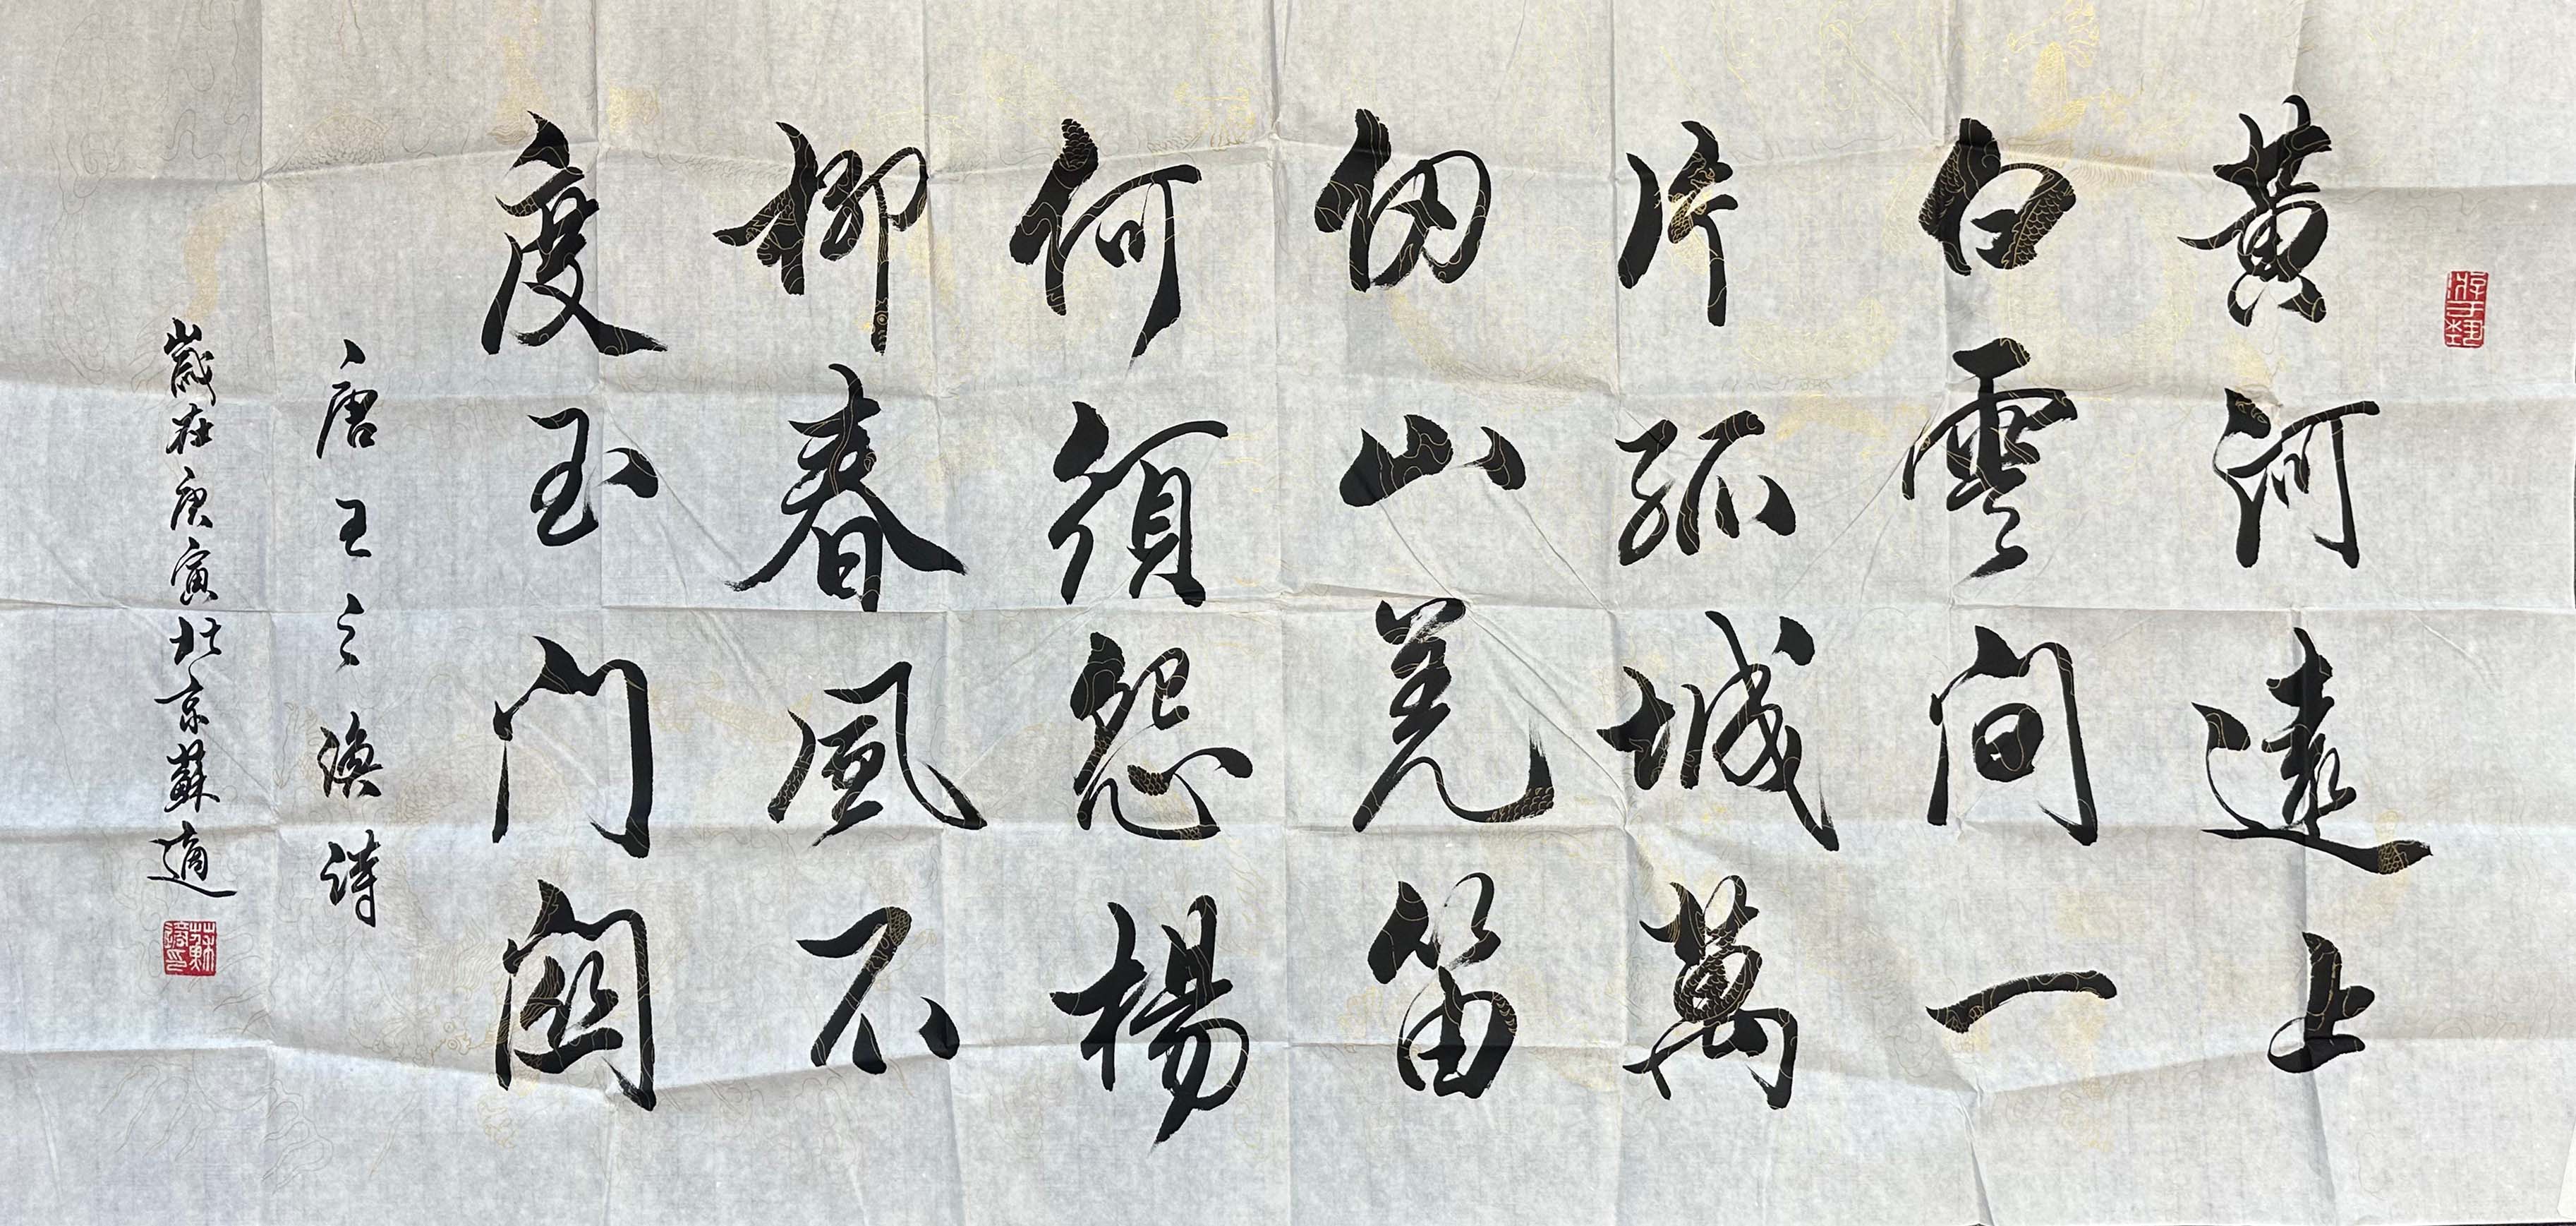 游于艺
黄河遠上
白雲间一
片孤城萬
仞山羌笛
何須怨楊
柳春風不
度玉门関
唐王之渙詩
歲在庚寅北京蘇適
蘇適印